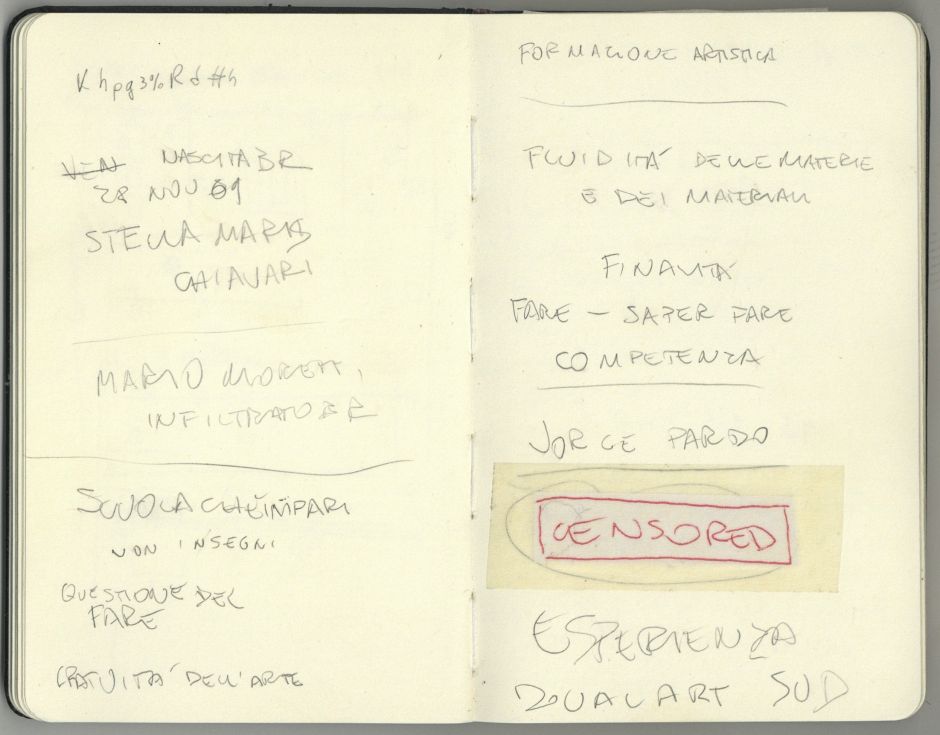 Khpg3%Rd#h
NASCITA BR
28 NOV 69
STELLA MARIS
CHIAVARI
MARIO MORETTI,
INFILTRATO BR
SCUOLA CHE IMPARI
NON INSEGNI
QUESTIONE DEL
FARE
GRATUITÁ DELL'ARTE
FORMAZIONE ARTISTICA
FLUIDITÁ DELLE MATERIE
E DEI MATERIALI
FINALITÁ
FARE – SAPER FARE
COMPETENZA
JORGE PARDO
CENSORED
ESPERIENZA
SUD